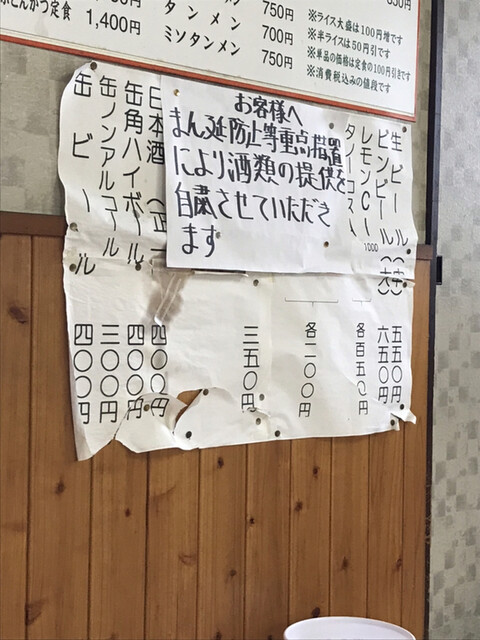 とんかつ定食 1,400円
750円
タンメン 700円
ミソタンメン 750円
650円
※ライス大盛は100円増です
※半ライスは50円引です
※単品の価格は定食の100円引きです
※消費税込みの値段です
お客様へ
まん延防止等重点措置
により酒類の提供を
自粛させていただき
ます
生ビール (中) 五五〇円
ビンビール (大) 六五〇円
レモンCー 各百五〇円
1000
各二〇〇円
三五〇円
日本酒 (正一 四〇〇円
缶角ハイボール 四〇〇円
缶ノンアルコール 三〇〇円
缶ビール 四〇〇円